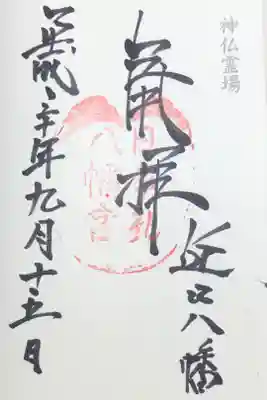 神仏霊場
奉拝
近江八幡
八幡宮
平成二十年九月十五日